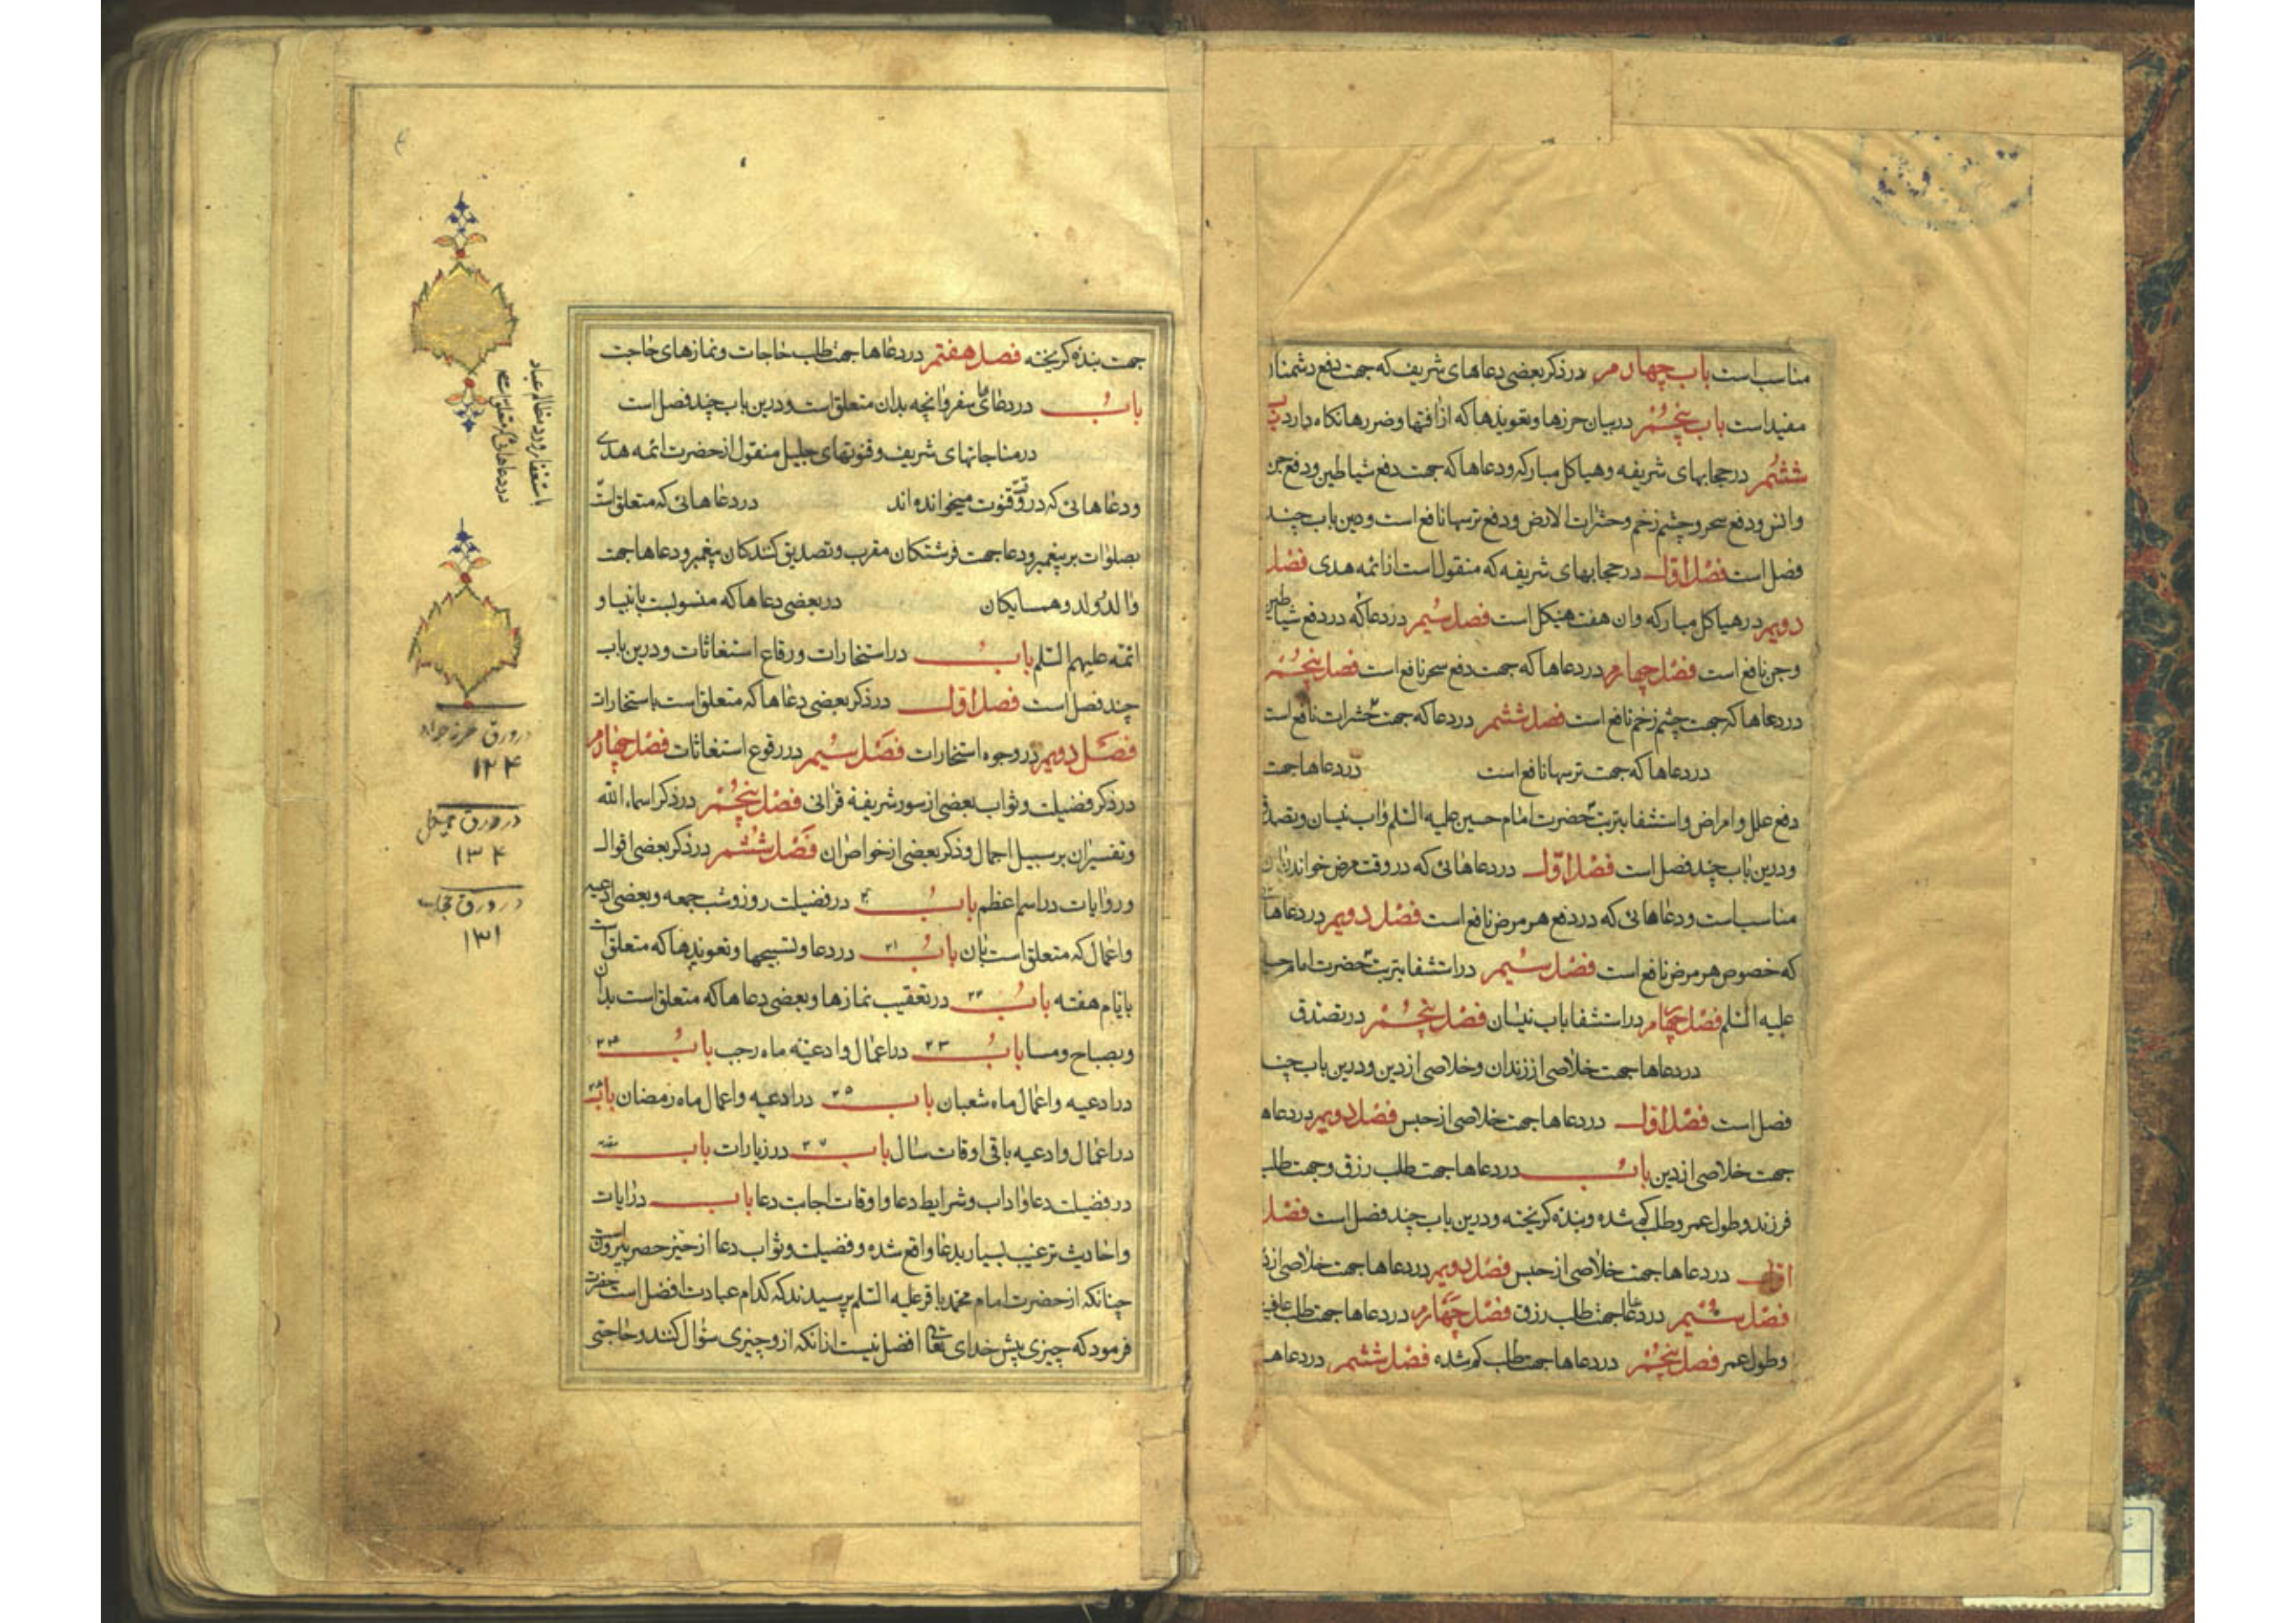 مناسب است باب چهارم در ذکر بعضی دعاهای شریف که جهت دفع دشمنان
مفید است باب پنجم در بیان حرزها و تعویذها که از آفتها و ضررها نکاه دارد باب
ششم در حجابهای شریفه و هیاکل مبارکه و دعاها که جهت دفع شیاطین و دفع جن
و انس و دفع سحر و چشم زخم و حشرات الارض و دفع ترسها نافع است و درین باب چند
فصل است فصل اول در حجابهای شریفه که منقول است از ائمه هدی فصل
دویم در هیاکل مبارکه و ان هفت هیکل است فصل سیم در دعا که در دفع شیاطین
و جن نافع است فصل چهارم در دعاها که جهت دفع سحر نافع است فصل پنجم
در دعاها که جهت چشم زخم نافع است فصل ششم در دعا که جهت حشرات نافع است
در دعاها که جهت ترسها نافع است در دعاها جهت
دفع علل و امراض و استشفا بتربت حضرت امام حسین علیه السلم و اب نیسان و تصدق
و درین باب چند فصل است فصل اول در دعاهائی که در وقت مرض خواندن ان
مناسب است و دعاهائی که در دفع هر مرض نافع است فصل دویم در دعاهائی
که خصوص هر مرض نافع است فصل سیم در استشفا بتربت حضرت امام حسین
علیه السلم فصل چهارم در استشفا باب نیسان فصل پنجم در تصدق
در دعاها جهت خلاصی از زندان و خلاصی از دین و درین باب چند
فصل است فصل اول در دعاها جهت خلاصی از حبس فصل دویم در دعاها
جهت خلاصی از دین باب در دعاها جهت طلب رزق و جهت طلب
فرزند و طول عمر و طلب کم شده و بنده کریخته و درین باب چند فصل است فصل
اول در دعاها جهت خلاصی از حبس فصل دویم در دعاها جهت خلاصی از
فصل سیم در دعاها جهت طلب رزق فصل چهارم در دعاها جهت طلب عافیت
و طول عمر فصل پنجم در دعاها جهت طلب کم شده فصل ششم در دعاها
جهت بنده کریخته فصل هفتم در دعاها جهت طلب حاجات و نمازهای حاجت
باب در دعاهای سفر و انچه بدان متعلق است و درین باب چند فصل است
در مناجاتهای شریف و قنوتهای جلیل منقول از حضرت ائمه هدی
و دعاهائی که در وقت قنوت میخوانده اند در دعاهائی که متعلق است
بصلوات بر پیغمبر و دعا جهت فرشتکان مقرب و تصدیق کنندکان پیغمبر و دعاها جهت
والد و ولد و همسایکان در بعضی دعاها که منسوبست بانبیا و
ائمه علیهم السلم باب در استخارات و رقاع استغاثات و درین باب
چند فصل است فصل اول در ذکر بعضی دعاها که متعلق است باستخارات
فصل دویم در وجوه استخارات فصل سیم در رقوع استغاثات فصل چهارم
در ذکر فضیلت و ثواب بعضی از سور شریفۀ قرانی فصل پنجم در ذکر اسماء الله
و تفسیر ان بر سبیل اجمال و ذکر بعضی از خواص ان فصل ششم در ذکر بعضی اقوال
و روایات در اسم اعظم باب ۲۰ در فضیلت روز و شب جمعه و بعضی ادعیه
و اعمال که متعلق است بان باب ۲۱ در دعا و تسبیحها و تعویذها که متعلق است
بایام هفته باب ۲۲ در تعقیب نمازها و بعضی دعاها که متعلق است بدان
و بصباح و مسا باب ۲۳ در اعمال و ادعیۀ ماه رجب باب ۲۴
در ادعیه و اعمال ماه شعبان باب ۲۵ در ادعیه و اعمال ماه رمضان باب ۲۶
در اعمال و ادعیه باقی اوقات سال باب ۲۷ در زیارات باب
در فضیلت دعا و اداب و شرایط دعا و اوقات اجابت دعا باب در ایات
و احادیث ترغیب بسیار بدعا واقع شده و فضیلت و ثواب دعا از حیز حصر بیرون است
چنانکه از حضرت امام محمد باقر علیه السلم پرسیدند که کدام عبادت افضل است حضرت
فرمود که چیزی پیش خدای تعالی افضل نیست از انکه از و چیزی سؤال کنند و حاجتی
در دعاهائی که متعلق است
باستغفار و رد مظالم عباد
در ورق حرز جواد
۱۲۴
در ورق هیکل
۱۳۴
در ورق حجاب
۱۳۱